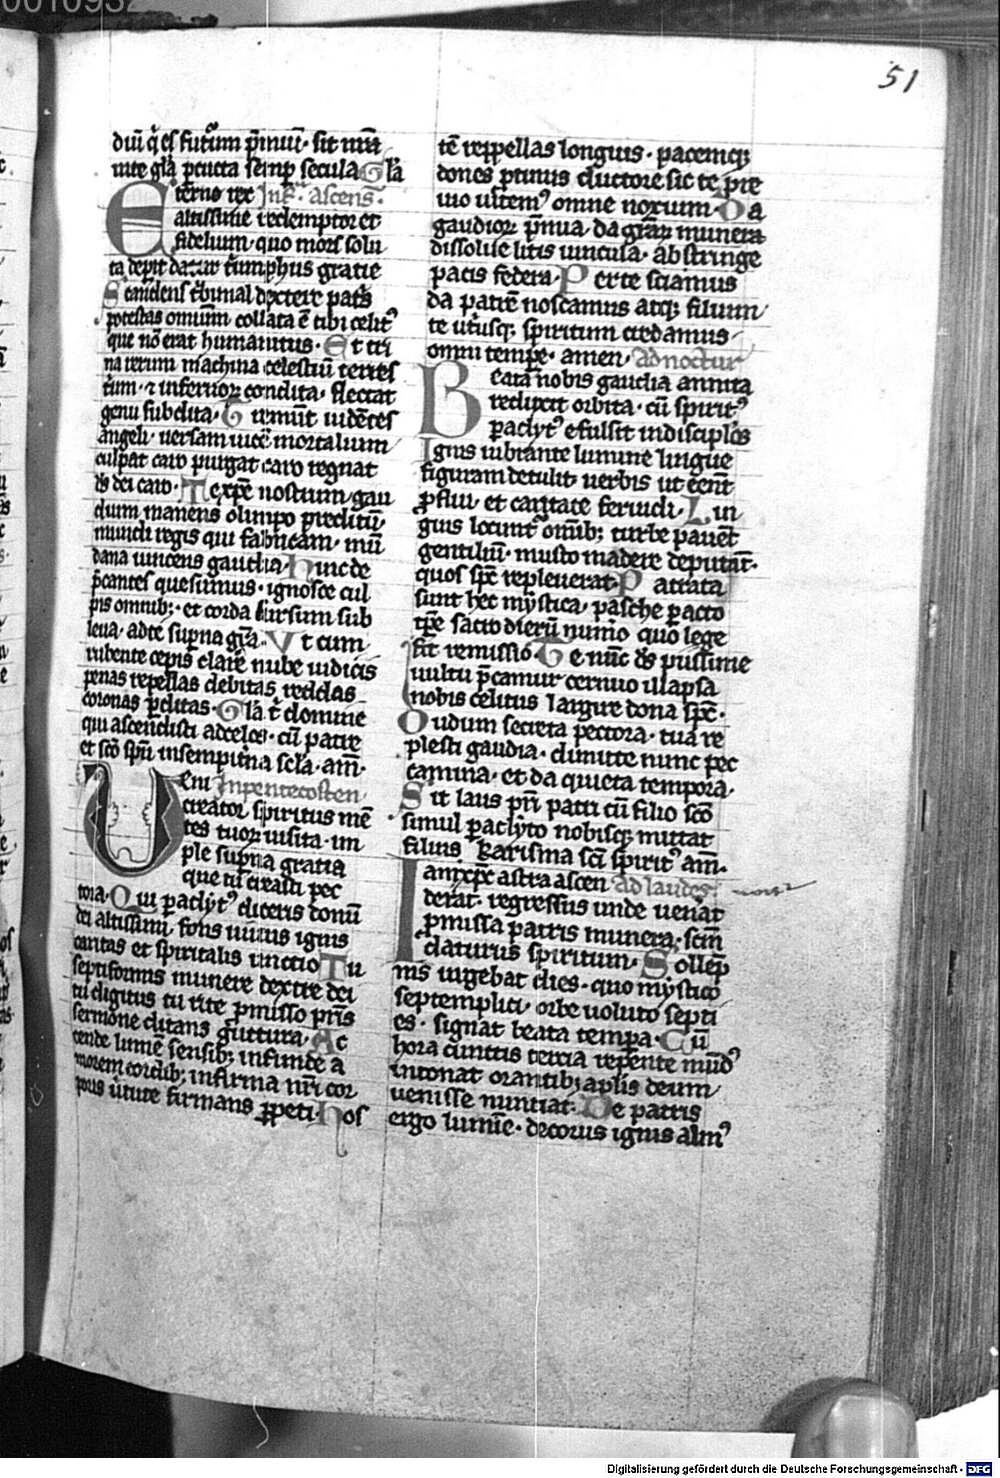 51
diũ q̓ es futurũ p̄miũ · sit nr̃a
in te gl̃a p̱ cuncta semp̱ secula Gl̃a
Eterne rex Ink̄ ascens̄ ·
altissime redemptor et
fidelium · quo mors solu
ta deperit datur triumphus gratie
Scandens tribunal dextere patris
potestas omnium collata ē tibi celitꝰ
que nō erat humanitus · Et tri
na rerum machina celestiū terres
trium · ⁊ infernoꝝ condita · flectat
genu subdita · Tremunt uidētes
angeli · uersam uicē mortalium
culpat caro purgat caro regnat
d̄s dei caro · Tu xp̄e nostrum gau
dium manens olimpo preditū ·
mundi regis qui fabricam · mū
dana uincens gaudia · Hinc te
p̄cantes quesumus · ignosce cul
pis omnibꝫ · et corda sursum sub
leua · ad te sup̱na gr̃a · Ut cum
rubente cep̱is clarere nube iudicis
penas repellas debitas reddas
coronas p̱ditas · Gl̃a t̓ domine
qui ascendisti ad celos · cū patre
et sc̄o sp̄u in sempit̓na sc̄la · am̄ ·
Ueni In pentecosten
creator spiritus mē
tes tuoꝝ uisita · im
ple sup̱na gratia
que tu creasti pec
tora · Qui paclyt̓ diceris donū
dei altissimi · fons uiuus ignis
caritas et spiritalis unctio Tu
septiformis munere dextre dei
tu digitus tu rite p̱misso pr̄is
sermone ditans guttura · Ac
cende lumē sensibꝫ infunde a
morem cordibꝫ infirma nr̄i cor
poris uirtute firmans p̱peti · Hos
tē reppellas longius · pacemqꝫ
dones p̱tinus ductore sic te pre
uio uitem̓ omne noxium · Da
gaudioꝝ p̄mia · da gr̃aꝝ munera
dissolue litis uincula · abstringe
pacis federa · Per te sciamus
da patrē noscamus atqꝫ filium
te utriusqꝫ spiritum credamus
omni tempe · amen · ad noctur̄
Beata nobis gaudia anni
reduxit orbita · cū spiritꝰ
paclytꝰ efulsit in discip̱los
Ignis uibrante lumine lingue
figuram detulit uerbis ut eēnt
p̱flui · et caritate feruidi · Lin
guis locunt̓ om̄ibꝫ turbe pauēt
gentiliū · musto madere deputāt ·
quos sp̄c repleuerat · Patrata
sunt hec mystica · pasche p̱acto
tp̄e sacro dierū num̄o quo lege
fit remissio · Te nūc d̄s piissime
uultu p̄camur cernuo illapsa
nobis celitus largire dona sp̄c ·
Dudum sacrata pectora · tua re
plesti gaudia · dimitte nunc pec
camina · et da quieta tempora ·
Sit laus pr̄i patri cū filio sc̄o
simul paclyto nobisqꝫ mittat
filius karisma sc̄i spiritꝰ am̄ ·
Iam xp̄c astra ascen ad laudes ·
derat · regressus unde uenāt
p̱missa patris munera · sc̄m
daturus spiritum · Sollēp
nis urgebat dies · quo mystico
septemplici · orbe uoluto septi
es · signat beata tempa · Cū
hora cunctis tercia repente mūdꝰ
intonat orantibꝫ ap̄lis deum
uenisse nuntiat · De patris
ergo lumīe · decorus ignis almꝰ
Digitalisierung gefördert durch die Deutsche Forschungsgemeinschaft - DFG